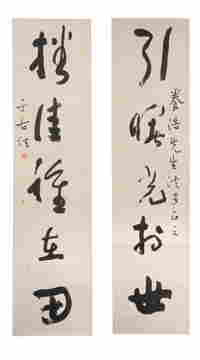 引曙光於世
浩先生法家正之
播佳種在田
于右任